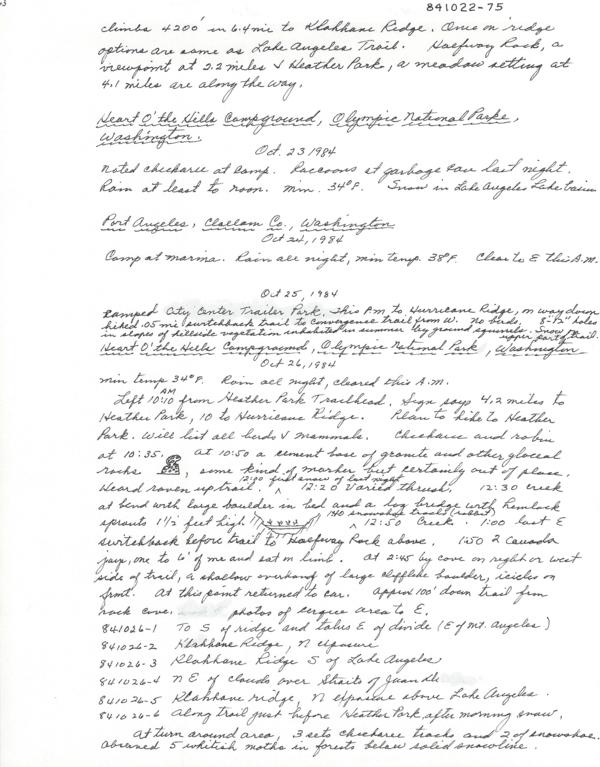 841022-75
climbs 4200' in 6.4 mi to Klahhane Ridge. Once on ridge
options are same as Lake Angeles Trail. Halfway Rock, a
viewpoint at 2.2 miles & Heather Park, a meadow setting at
4.1 miles are along the way.
Heart O' the Hills Campground, Olympic National Park,
Washington.
Oct. 23 1984
Noted chickaree at camp. Raccoons at garbage can last night.
Rain at least to noon. min. 34°F. Snow in Lake Angeles Lake basin
Port Angeles, Clallam Co., Washington
Oct 24, 1984
Camp at marina. Rain all night, min temp. 38°F. Clear to E this A.M.
Oct 25, 1984
Camped City Center Trailer Park. This PM to Hurricane Ridge, on way down
hiked .05 mi switchback trail to convergence trail from W. No birds. 8-12" holes
in slopes of hillside vegetation inhabited in summer by ground squirrels. Snow on
upper part of trail.
Heart O' the Hills Campground, Olympic National Park, Washington
Oct 26, 1984
min temp 34°F. Rain all night, cleared this A.M.
Left 10:10 AM from Heather Park Trailhead. Sign says 4.2 miles to
Heather Park, 10 to Hurricane Ridge. Plan to hike to Heather
Park. Will list all birds & mammals. Chickaree and robin
at 10:35. at 10:50 a cement base of granite and other glacial
rocks, some kind of marker but certainly out of place.
Heard raven up trail. 12:20 first snow of last night 12:20 Varied thrush, 12:30 creek
at bend with large boulder in bed and a log bridge with hemlock
sprouts 1½ feet high. 1240 snowshoe tracks (rabbit) 12:50 Creek. 1:00 last E
switchback before trail to Halfway Rock above. 1:50 2 Canada
jays, one to 6' of me and sat on limb. At 2:45 by cove on right or west
side of trail, a shallow overhang of large clifflike boulder, icicles on
front. At this point returned to car. Approx 100' down trail from
rock cove. photos of cirque area to E.
841026-1 To S of ridge and talus E of divide (E of Mt. Angeles)
841026-2 Klahhane Ridge, N exposure
841026-3 Klahhane Ridge S of Lake Angeles
841026-4 N E of clouds over Straits of Juan de
841026-5 Klahhane ridge, N exposure above Lake Angeles.
841026-6 Along trail just before Heather Park, after morning snow.
At turn around area, 3 sets chickaree tracks and 2 of snowshoe.
Observed 5 whitish moths in forests below solid snowline.